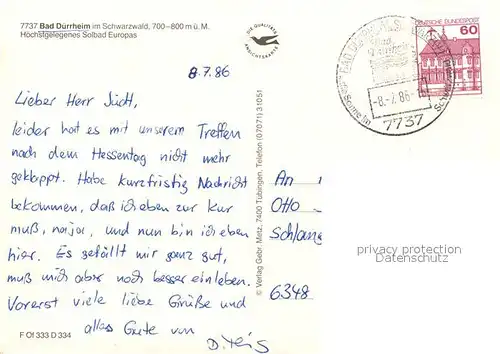 7737 Bad Dürrheim im Schwarzwald, 700–800 m ü. M.
Höchstgelegenes Solbad Europas
DIE QUALITÄTS
ANSICHTSKARTE
8.7.86
Lieber Herr
leider hat es mit unserem Treffen
nach dem Hessentag nicht mehr
geklappt. Habe kurzfristig Nachricht
bekommen, daß ich eben zur Kur
muß, naja, und nun bin ich eben
hier. Es gefällt mir ganz gut,
muß mich aber noch besser einleben.
Vorerst viele liebe Grüße und
alles Gute von
F Of 333 D 334
© Verlag Gebr. Metz, 7400 Tübingen, Telefon (07071) 31051
DEUTSCHE BUNDESPOST
60
BAD DÜRRHEIM
-8.-7.86-
7737
An
Otto
Schlang
6348
privacy protection
Datenschutz